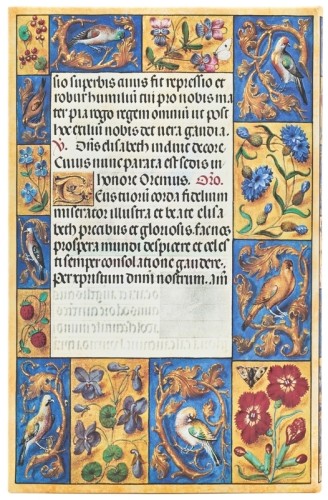 sio superbis amis fit repressio et
robur humiliū tui pro nobis ma
ter pia rogo regem omniū ut post
hoc exiliū nobis det vera gaudia.
V. Dn̄s elisabeth induit decore.
Et nunc parata est sedis in
honore Oremus. Oro.
Deus tuorū corda fidelium
miserator illustra et beate elisa
beth precibus et gloriosis. fac nos
prospera mundi despicere et celes
ti semper consolatione gaudere.
Per xpristum dnm̄ nostrum. Am̄